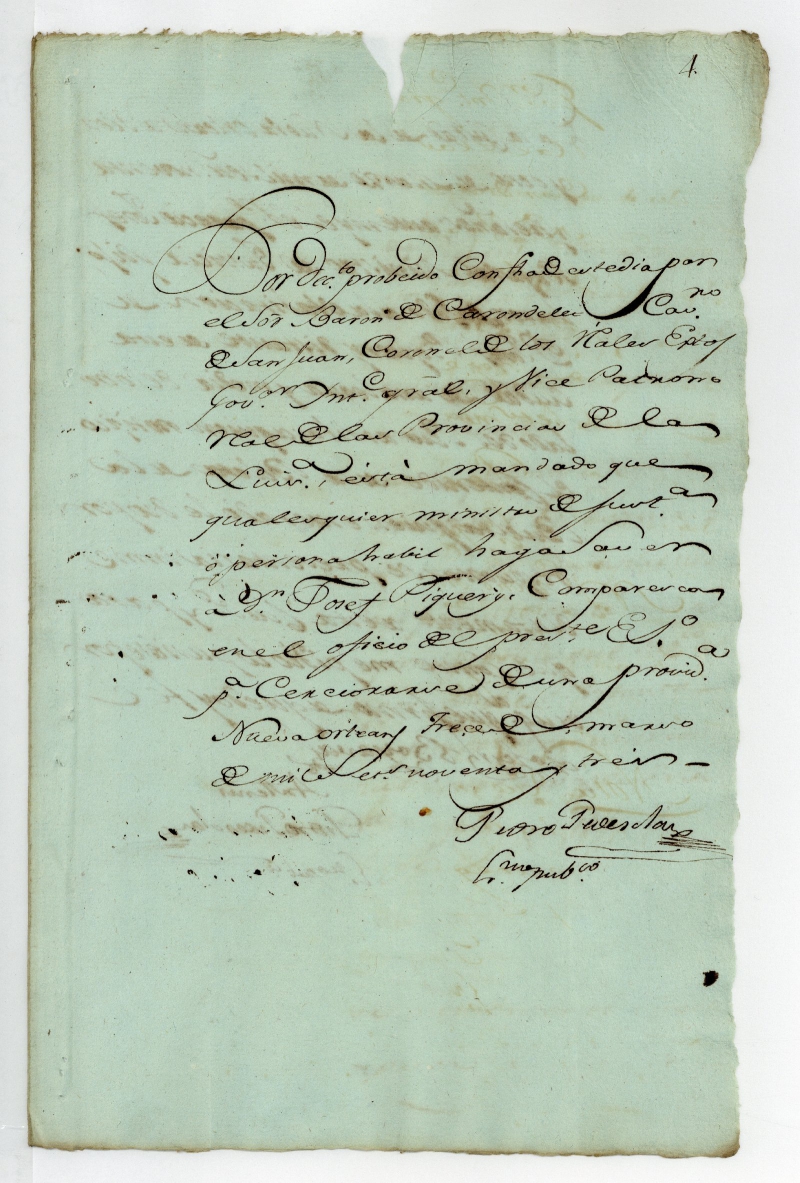 4.
Por decto. probeido Con fha de este dia por
el Sor. Baron de Carondelet Cavno.
de San Juan, Coronel de los Rales Extos
Govor. Intte. gral, y Vice Patrono
Ral de las Provincias de la
Luisa., està mandado que
qualesquier ministro de Justa.
ò persona habil haga Saver
à Dn. Josef Piquery, Comparesca
en el oficio del preste. Eso.
pa. Cerciorarse de una provida.
Nueva orleans Trece de marzo
de mil Setes. noventa y tres—
Pedro Pedesclaux
Esno. pubco.